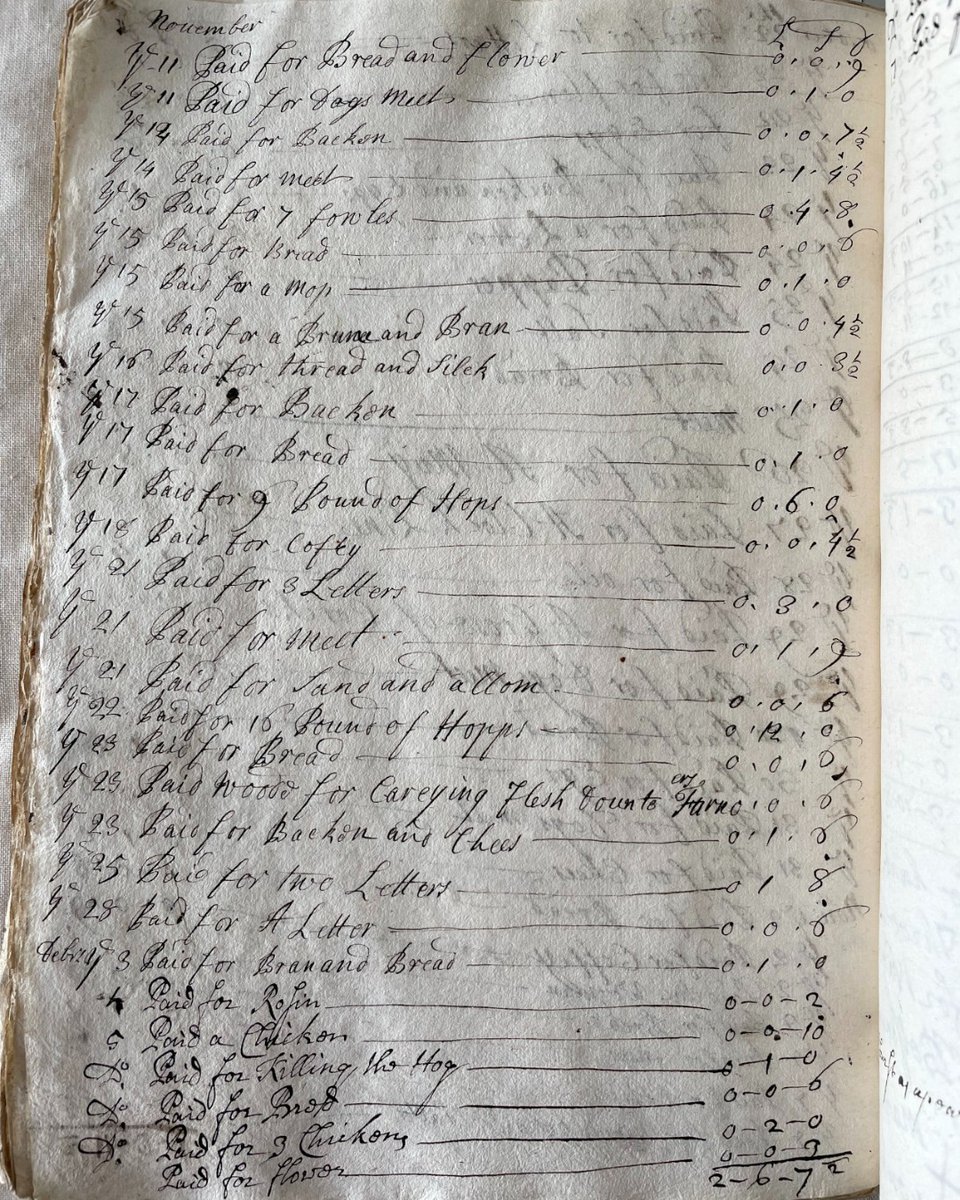 November £ s d
ye 11 Paid for Bread and flower 0 . 0 . 9
ye 11 Paid for Dogs meet 0 . 1 . 0
ye 12 Paid for Backen 0 . 0 . 7½
ye 14 Paid for meet 0 . 1 . 4½
ye 15 Paid for 7 fowles 0 . 4 . 8
ye 15 Paid for Bread 0 . 0 . 6
ye 15 Paid for a mop 0 . 1 . 0
ye 15 Paid for a and Bran 0 . 0 . 4½
ye 16 Paid for thread and Silek 0 . 0 . 3½
ye 17 Paid for Backen 0 . 1 . 0
ye 17 Paid for Bread 0 . 1 . 0
ye 17 Paid for 9 Pound of Hops 0 . 6 . 0
ye 18 Paid for Coffy 0 . 0 . 4½
ye 21 Paid for 3 Letters 0 . 3 . 0
ye 21 Paid for meet 0 . 1 . 9
ye 21 Paid for Sand and allom 0 . 0 . 6
ye 22 Paid for 16 Pound of Hopps 0 . 12 . 0
ye 23 Paid for Bread 0 . 0 . 6
ye 23 Paid Woods for Careying flesh Doun to 0 . 0 . 6
ye 23 Paid for Backen and Chees 0 . 1 . 6
ye 25 Paid for two Letters 0 1 . 8
ye 28 Paid for A Letter 0 . 0 . 6
ye 3 Paid for Bran and Bread 0 . 1 . 0
4 Paid for Rosin 0 - 0 - 2
5 Paid a Chicken 0 - 0 - 10
Do Paid for Killing the Hog 0 - 1 - 0
Do Paid for Bred 0 - 0 - 6
Do Paid for 3 Chickens 0 - 2 - 0
Paid for flower 0 - 0 - 3
2 - 6 - 7½